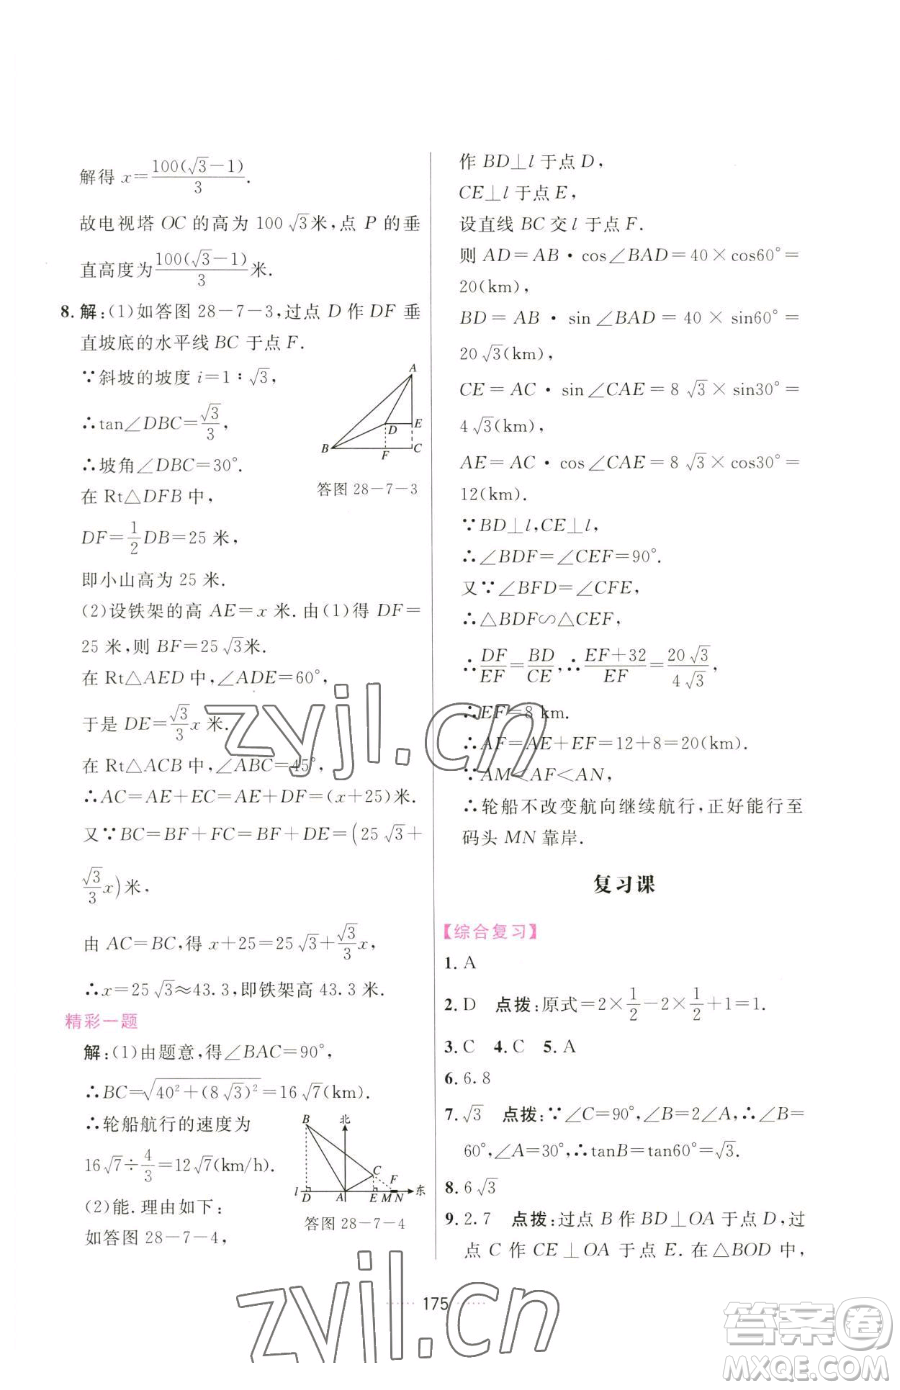 解得 x=100(√3-1)/3.
故电视塔 OC 的高为 100√3米,点 P 的垂
直高度为100(√3-1)/3米.
8. 解:(1)如答图 28-7-3,过点 D 作 DF 垂
直坡底的水平线 BC 于点 F.
∵斜坡的坡度 i=1∶√3,
∴tan∠DBC=√3/3,
∴坡角∠DBC=30°.
在 Rt△DFB 中,
DF=1/2DB=25 米,
即小山高为 25 米.
A
D
E
B
F
C
答图 28-7-3
(2)设铁架的高 AE=x 米.由(1)得 DF=
25 米,则 BF=25√3米.
在 Rt△AED 中,∠ADE=60°,
于是 DE=√3/3x 米.
在 Rt△ACB 中,∠ABC=45°,
∴AC=AE+EC=AE+DF=(x+25)米.
又∵BC=BF+FC=BF+DE=(25√3+
√3/3x)米,
由 AC=BC,得 x+25=25√3+√3/3x,
∴x=25√3≈43.3,即铁架高 43.3 米.
精彩一题
解:(1)由题意,得∠BAC=90°,
∴BC=√(40²+(8√3)²)=16√7(km).
∴轮船航行的速度为
16√7÷4/3=12√7(km/h).
(2)能.理由如下:
如答图 28-7-4,
北
B
C
F
l
D
A
E
M
N
东
答图 28-7-4
作 BD⊥l 于点 D,
CE⊥l 于点 E,
设直线 BC 交 l 于点 F.
则 AD=AB·cos∠BAD=40×cos60°=
20(km),
BD=AB·sin∠BAD=40×sin60°=
20√3(km),
CE=AC·sin∠CAE=8√3×sin30°=
4√3(km),
AE=AC·cos∠CAE=8√3×cos30°=
12(km).
∵BD⊥l,CE⊥l,
∴∠BDF=∠CEF=90°.
又∵∠BFD=∠CFE,
∴△BDF∽△CEF,
∴DF/EF=BD/CE,∴(EF+32)/EF=20√3/4√3,
∴EF=8 km.
∴AF=AE+EF=12+8=20(km).
∵AM<AF<AN,
∴轮船不改变航向继续航行,正好能行至
码头 MN 靠岸.
复习课
【综合复习】
1. A
2. D 点拨:原式=2×1/2-2×1/2+1=1.
3. C 4. C 5. A
6. 6.8
7. √3 点拨:∵∠C=90°,∠B=2∠A,∴∠B=
60°,∠A=30°,∴tanB=tan60°=√3.
8. 6√3
9. 2.7 点拨:过点 B 作 BD⊥OA 于点 D,过
点 C 作 CE⊥OA 于点 E.在△BOD 中,
175
zyjl.cn
zyjl.cn
答案圈
MXQE.COM